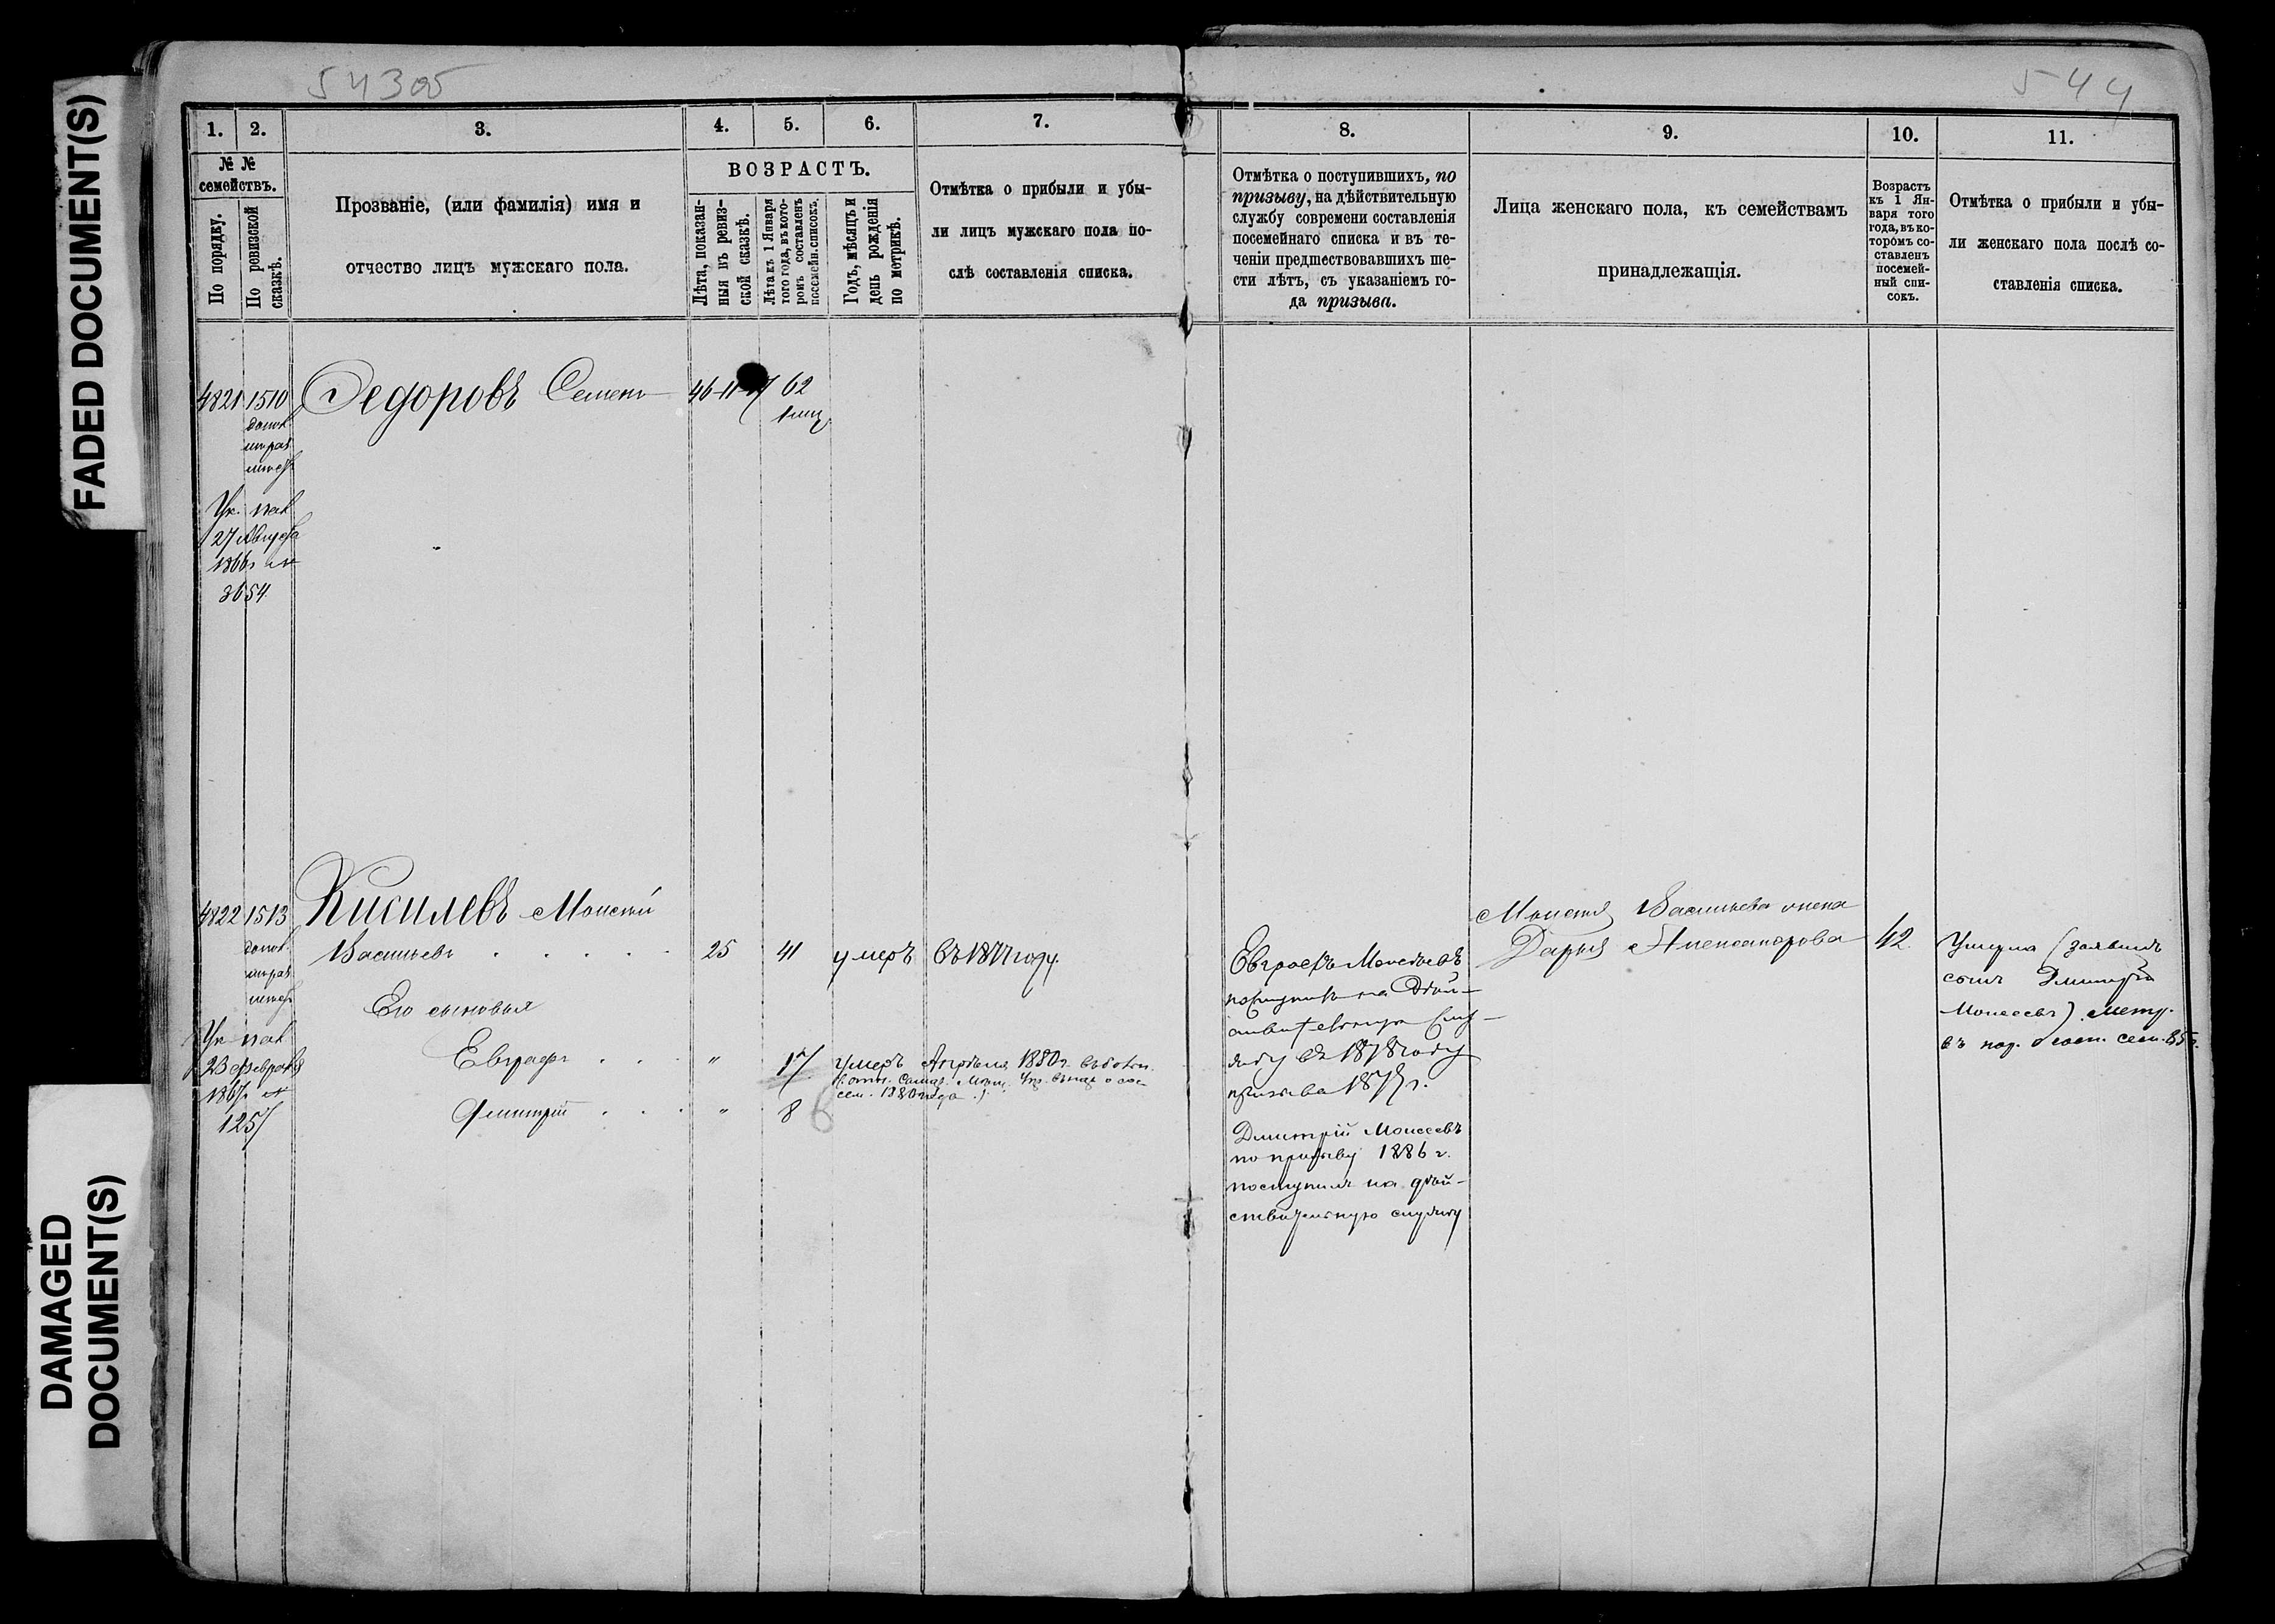 FADED DOCUMENT(S)
DAMAGED
DOCUMENT(S)
543об
544
1.
2.
3.
4.
5.
6.
7.
8.
9.
10.
11.
№ №
семействъ.
По порядку.
По ревизской
сказкѣ.
Прозваніе, (или фамилія) имя и
отчество лицъ мужскаго пола.
ВОЗРАСТЪ.
Лѣта, показан-
ныя въ ревиз-
ской сказкѣ.
Лѣта къ 1 Января
того года, въ кото-
ромъ составленъ
посемейн. списокъ.
Годъ, мѣсяцъ и
день рожденія
по метрикѣ.
Отмѣтка о прибыли и убы-
ли лицъ мужскаго пола по-
слѣ составленія списка.
Отмѣтка о поступившихъ, по
призыву, на дѣйствительную
службу современи составленія
посемейнаго списка и въ те-
ченіи предшествовавшихъ ше-
сти лѣтъ, съ указаніемъ го-
да призыва.
Лица женскаго пола, къ семействамъ
принадлежащія.
Возрастъ
къ 1 Ян-
варя того
года, въ ко-
торомъ со-
ставленъ
посемей-
ный спи-
сокъ.
Отмѣтка о прибыли и убы-
ли женскаго пола послѣ со-
ставленія списка.
4821 1510 Федоровъ Семенъ 46 62
Ук. пал
27 Августа
1866 №
3654
4822 1513 Кисилевъ Моисей
Васильевъ 25 41 умеръ въ 1877 году
Его сыновья
Ук пал
23 февраля
1867 №
1257
Евграфъ " 17 умеръ Апрѣля 1880 г.
сем. 1880 года
Дмитрій " 8 6
Евграфъ Моисѣевъ
поступилъ на Дѣй-
ствительную Слу-
жбу въ 1878 году
призыва 1877 г.
Дмитрій Моисеевъ
по призыву 1886 г.
поступилъ на дѣй-
ствительную службу
Моисея Васильева жена
Дарья Александрова 42
Умерла (заявилъ
сынъ Дмитрій
Моисеевъ)